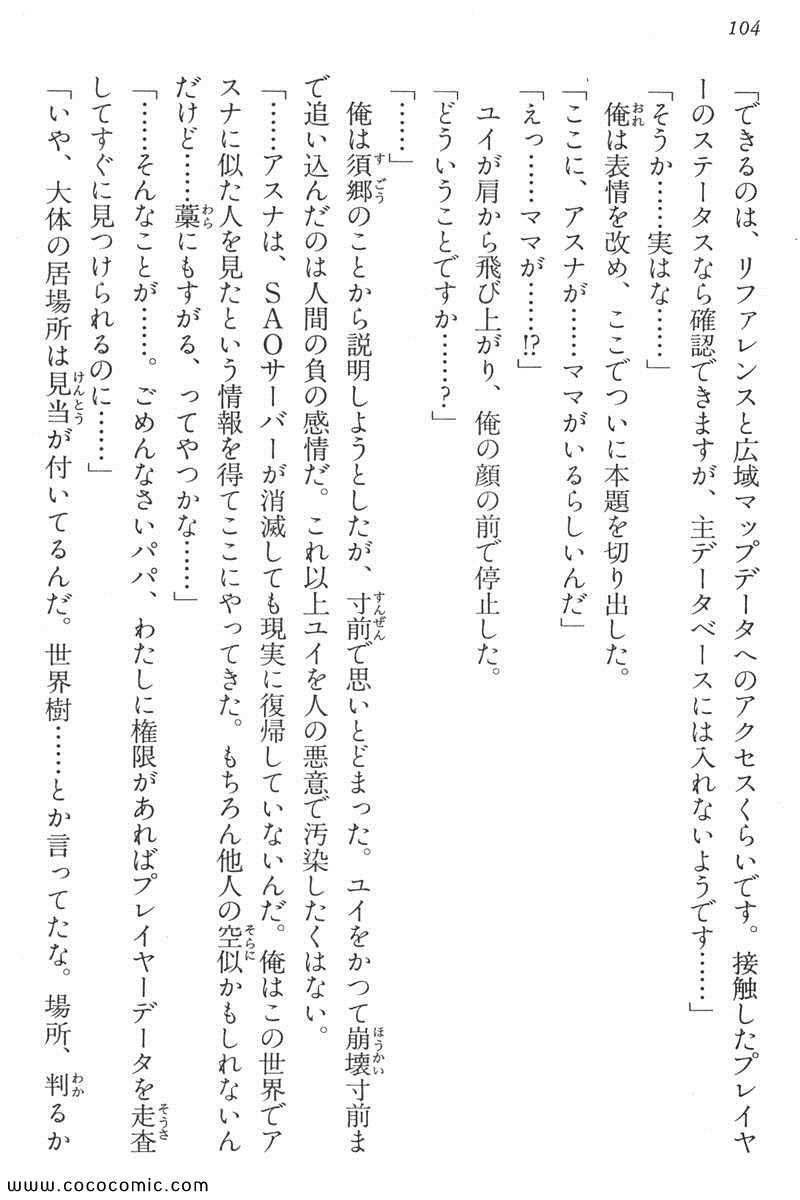 104
「できるのは、リファレンスと広域マップデータへのアクセスくらいです。接触したプレイヤ
ーのステータスなら確認できますが、主データベースには入れないようです……」
「そうか……実はな……」
俺は表情を改め、ここでついに本題を切り出した。
「ここに、アスナが……ママがいるらしいんだ」
「えっ……ママが……!?」
ユイが肩から飛び上がり、俺の顔の前で停止した。
「どういうことですか……?」
「……」
俺は須郷のことから説明しようとしたが、寸前で思いとどまった。ユイをかつて崩壊寸前ま
で追い込んだのは人間の負の感情だ。これ以上ユイを人の悪意で汚染したくはない。
「……アスナは、SAOサーバーが消滅しても現実に復帰していないんだ。俺はこの世界でア
スナに似た人を見たという情報を得てここにやってきた。もちろん他人の空似かもしれないん
だけど……藁にもすがる、ってやつかな……」
「……そんなことが……。ごめんなさいパパ、わたしに権限があればプレイヤーデータを走査
してすぐに見つけられるのに……」
「いや、大体の居場所は見当が付いてるんだ。世界樹……とか言ってたな。場所、判るか
www.cococomic.com